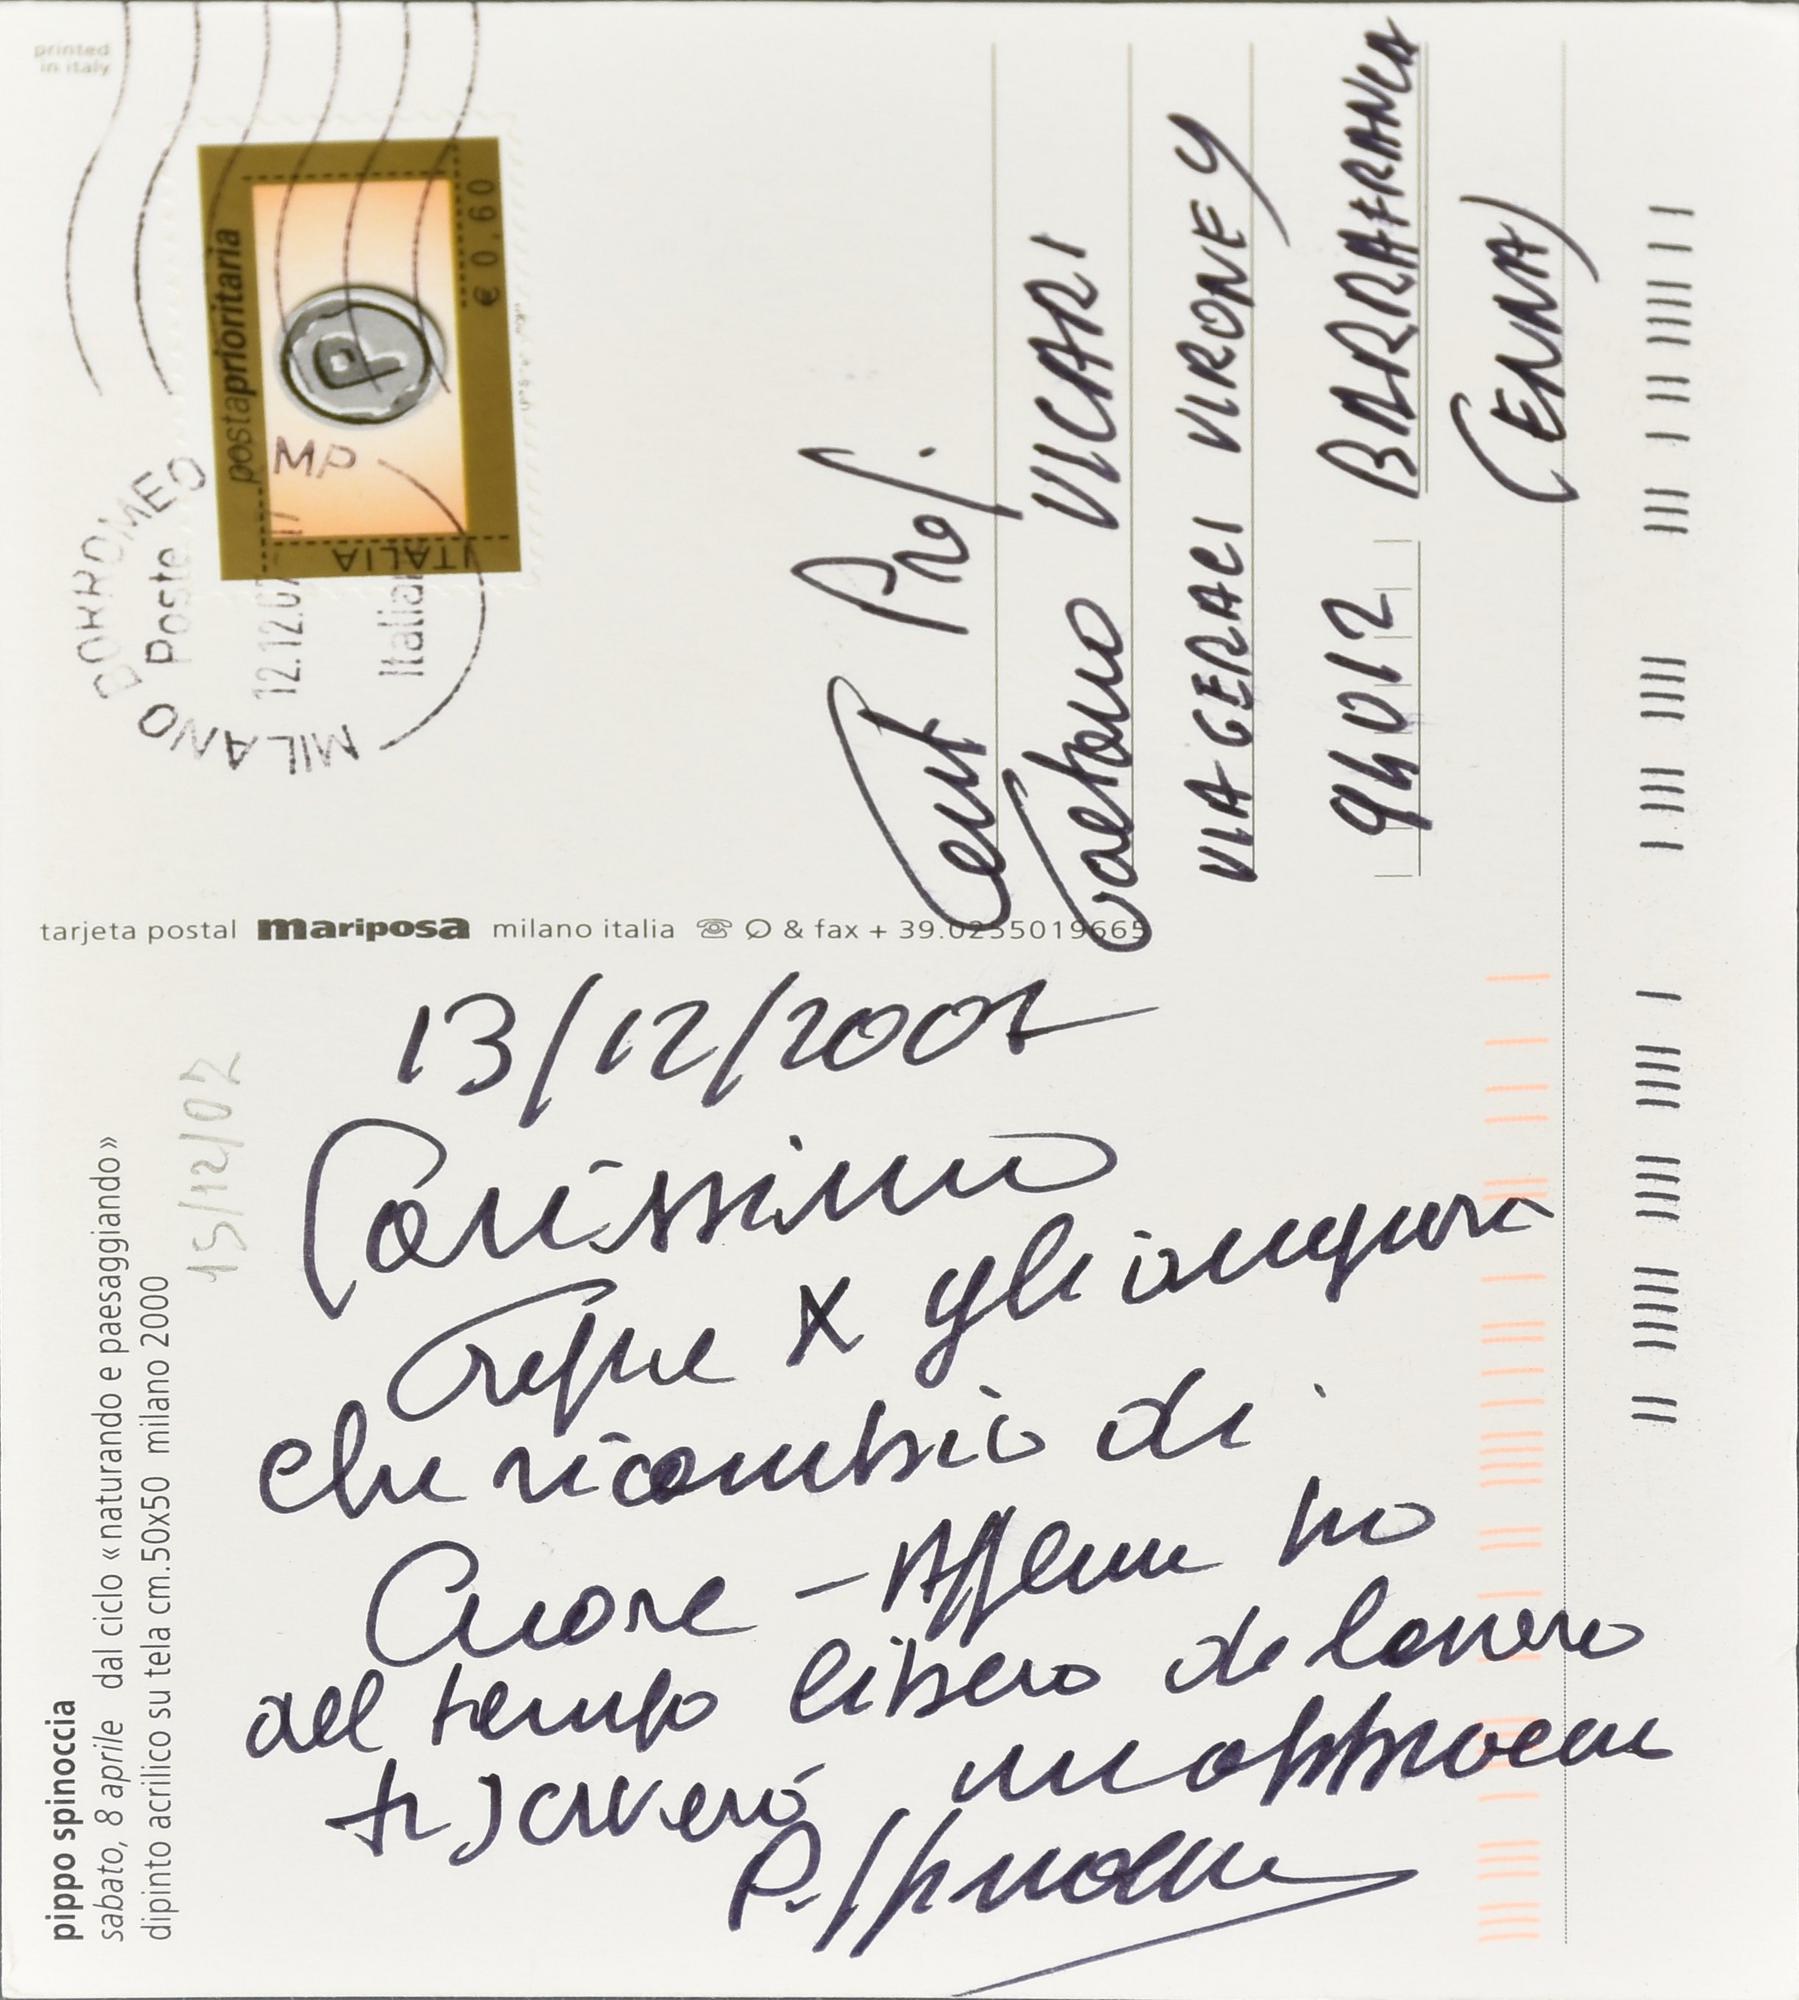 printed
in italy
BORROMEO
Poste
12.12.07
Italia
MILANO
MP
postaprioritaria
€ 0,60
ITALIA
tarjeta postal mariposa milano italia & fax + 39.0255019665
pippo spinoccia
sabato, 8 aprile dal ciclo « naturando e paesaggiando »
dipinto acrilico su tela cm.50x50 milano 2000
15/12/07
13/12/2007
Carissimo
Grazie x gli auguri
che ricambio di
Cuore - Appena ho
del tempo libero da lavoro
ti scriverò un abbraccio
P. Spinoccia
Prof.
Gaetano VICARI
VIA GERACI VIRONE 4
94012 BARRAFRANCA
(ENNA)